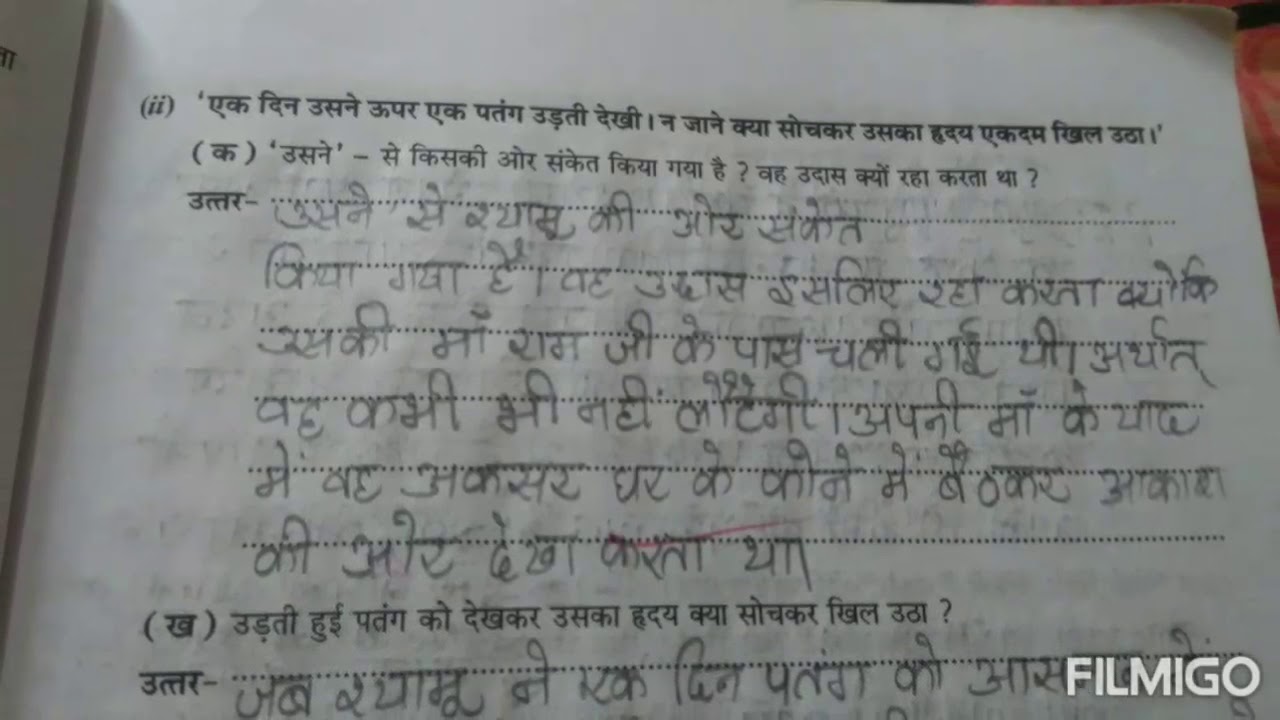 ता
(ii) 'एक दिन उसने ऊपर एक पतंग उड़ती देखी। न जाने क्या सोचकर उसका हृदय एकदम खिल उठा।'
(क) 'उसने' – से किसकी ओर संकेत किया गया है ? वह उदास क्यों रहा करता था ?
उत्तर- उसने से श्यामू की ओर संकेत
किया गया है। वह उदास इसलिए रहा करता क्योकि
उसकी माँ राम जी के पास चली गई थी। अर्थात्
वह कभी भी नहीं लौटेगी। अपनी माँ के याद
में वह अकसर घर के कोने में बैठकर आकाश
की ओर देखा करता था।
(ख) उड़ती हुई पतंग को देखकर उसका हृदय क्या सोचकर खिल उठा ?
उत्तर- जब श्यामू ने एक दिन पतंग को
FILMIGO